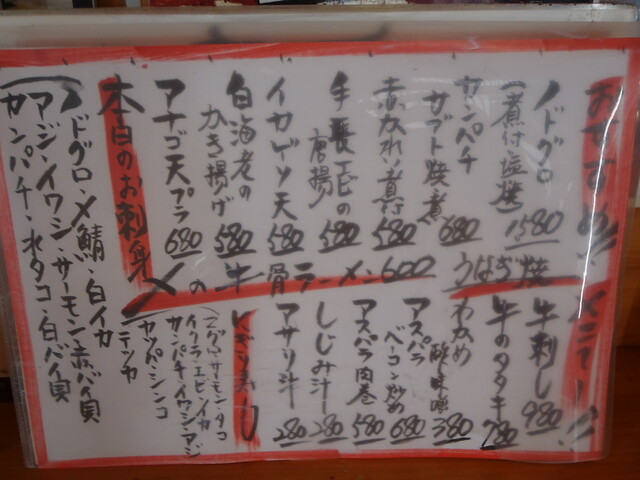 おすすめ!!
ノドグロ
(煮付塩焼) 1,580
カンパチ
カブト焼・煮 680
赤かれい煮付 580
手長エビの
唐揚 580
イカゲソ天 580
白海老の
かき揚げ 580
アナゴ天プラ 680
本日のお刺身
ノドグロ・〆鯖・白イカ
アジ・イワシ・サーモン・赤バイ貝
カンパチ・水タコ・白バイ貝
〆の牛骨ラーメン 600
牛刺し 980
牛のタタキ 780
わかめ
酢味噌 380
アスパラ
ベーコン炒め 680
アスパラ肉巻 580
しじみ汁 280
アサリ汁 280
にぎり寿し
マグロ・サーモン・タコ
イクラ・エビ・イカ
カンパチ・イワシ・アジ
テッカ